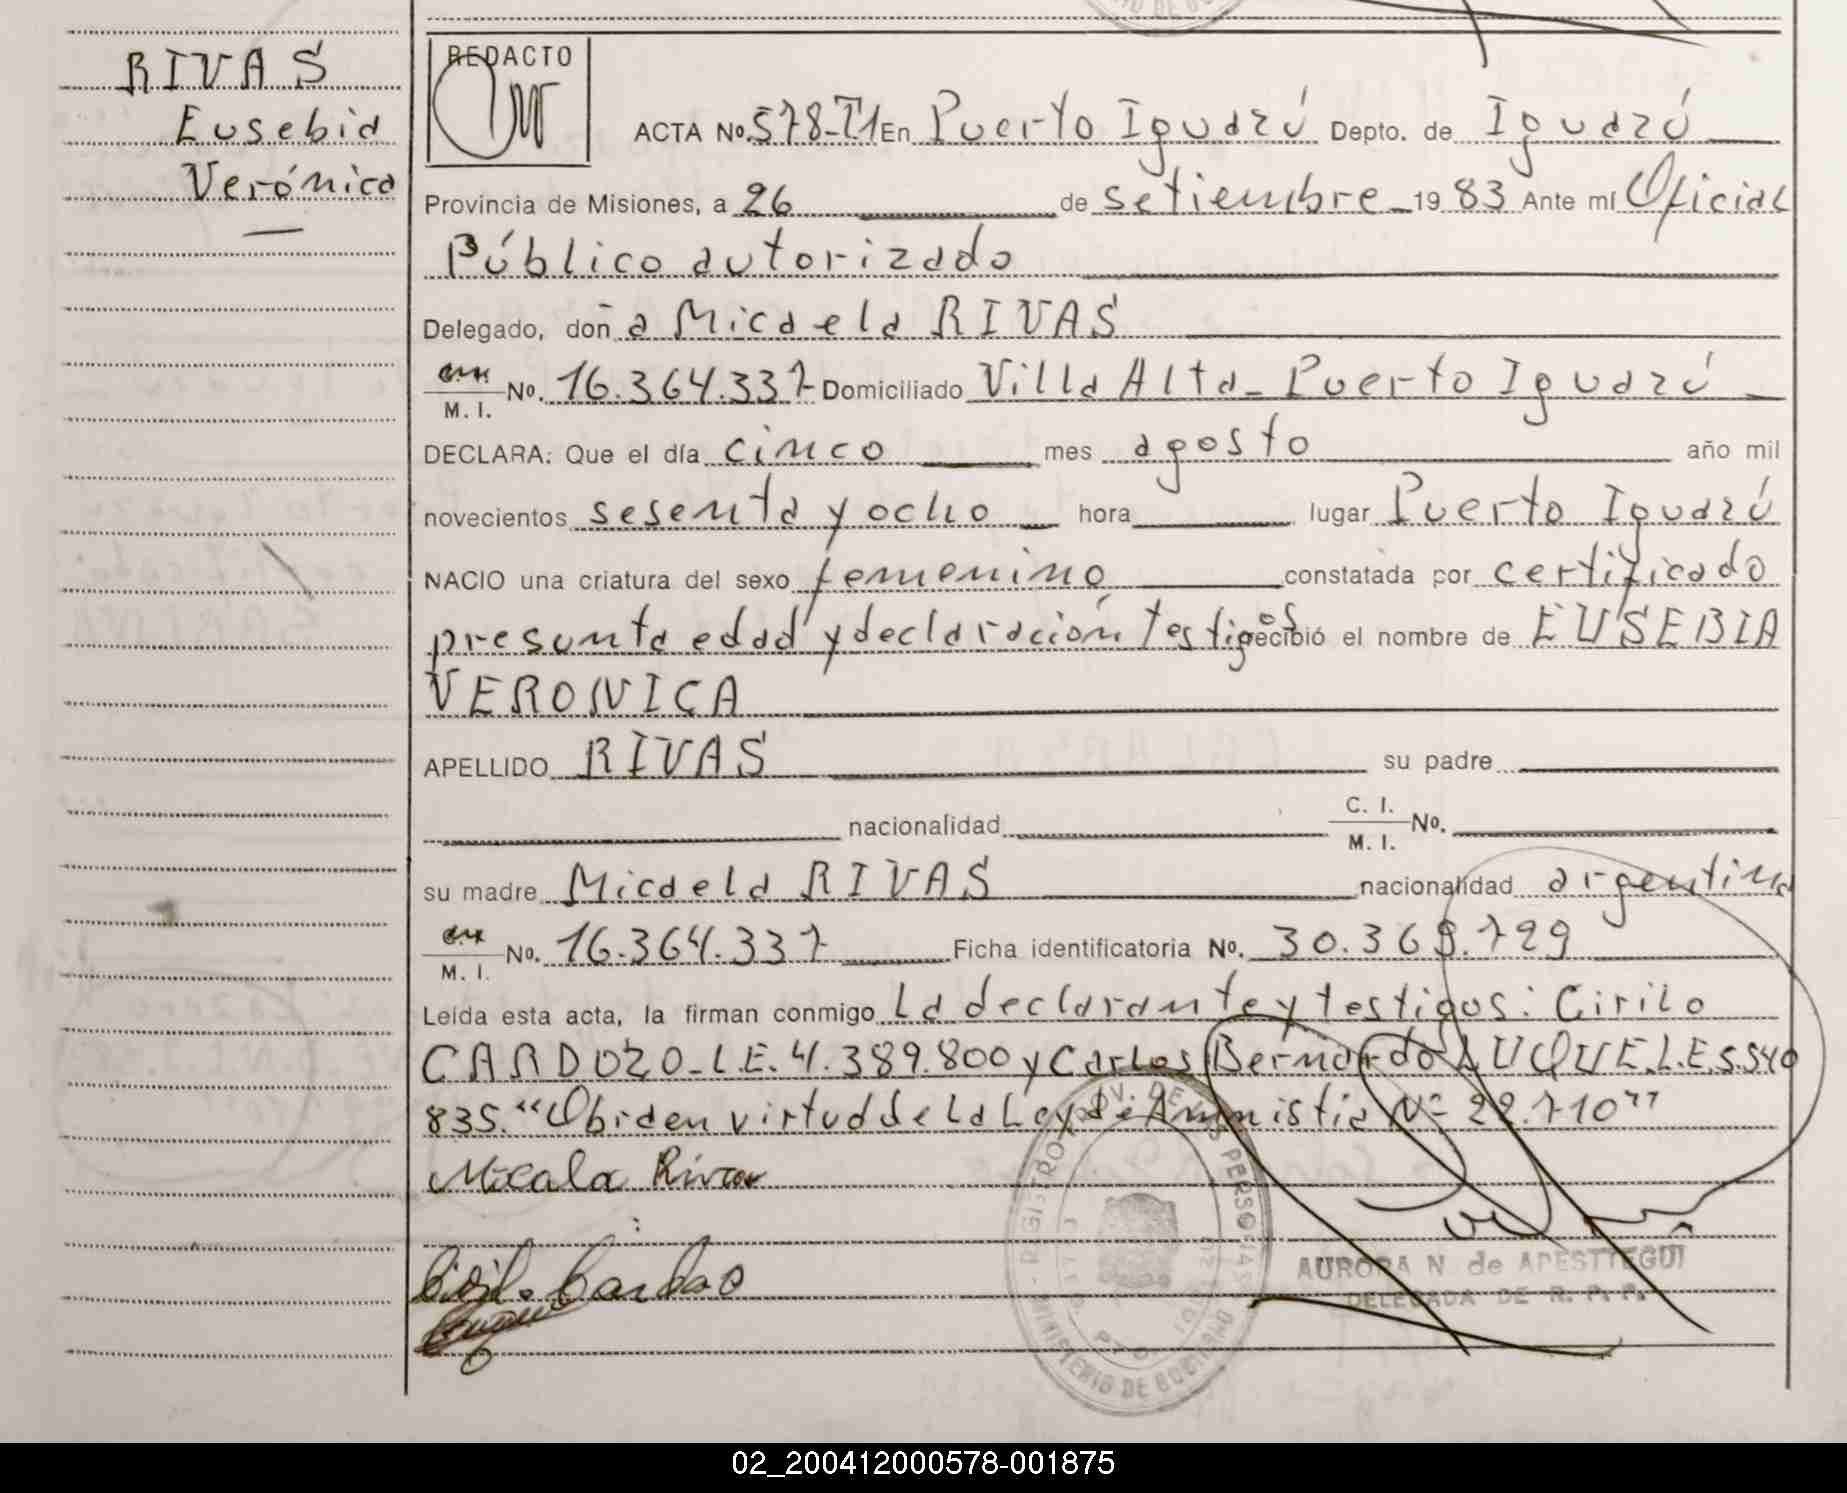 RIVAS
Eusebia
Verónica
REDACTO
ACTA No. 578-T1 En Puerto Iguazú Depto. de Iguazú
Provincia de Misiones, a 26 de setiembre 19 83 Ante mí Oficial
Público autorizado
Delegado, don a Micaela RIVAS
M. I. No. 16.364.337 Domiciliado Villa Alta - Puerto Iguazú
DECLARA: Que el día cinco mes agosto año mil
novecientos sesenta y ocho hora lugar Puerto Iguazú
NACIO una criatura del sexo femenino constatada por certificado
presunta edad y declaración testigos recibió el nombre de EUSEBIA
VERONICA
APELLIDO RIVAS su padre
nacionalidad C. I. M. I. No.
su madre Micaela RIVAS nacionalidad argentina
M. I. No. 16.364.337 Ficha identificatoria No. 30.369.729
Leída esta acta, la firman conmigo La declarante y testigos: Cirilo
CARDOZO-L.E. 4.389.800 y Carlos Bernardo LUQUE.L.E.5.540
835. "Obra en virtud de la Ley de Amnistia Nº 22.710"
Micaela Rivas
Cirilo Cardozo
REGISTRO PROV. DE LAS PERSONAS
MINISTERIO DE GOBIERNO
AURORA N. de APESTEGUI
DELEGADA DE R. P. P.
02_200412000578-001875